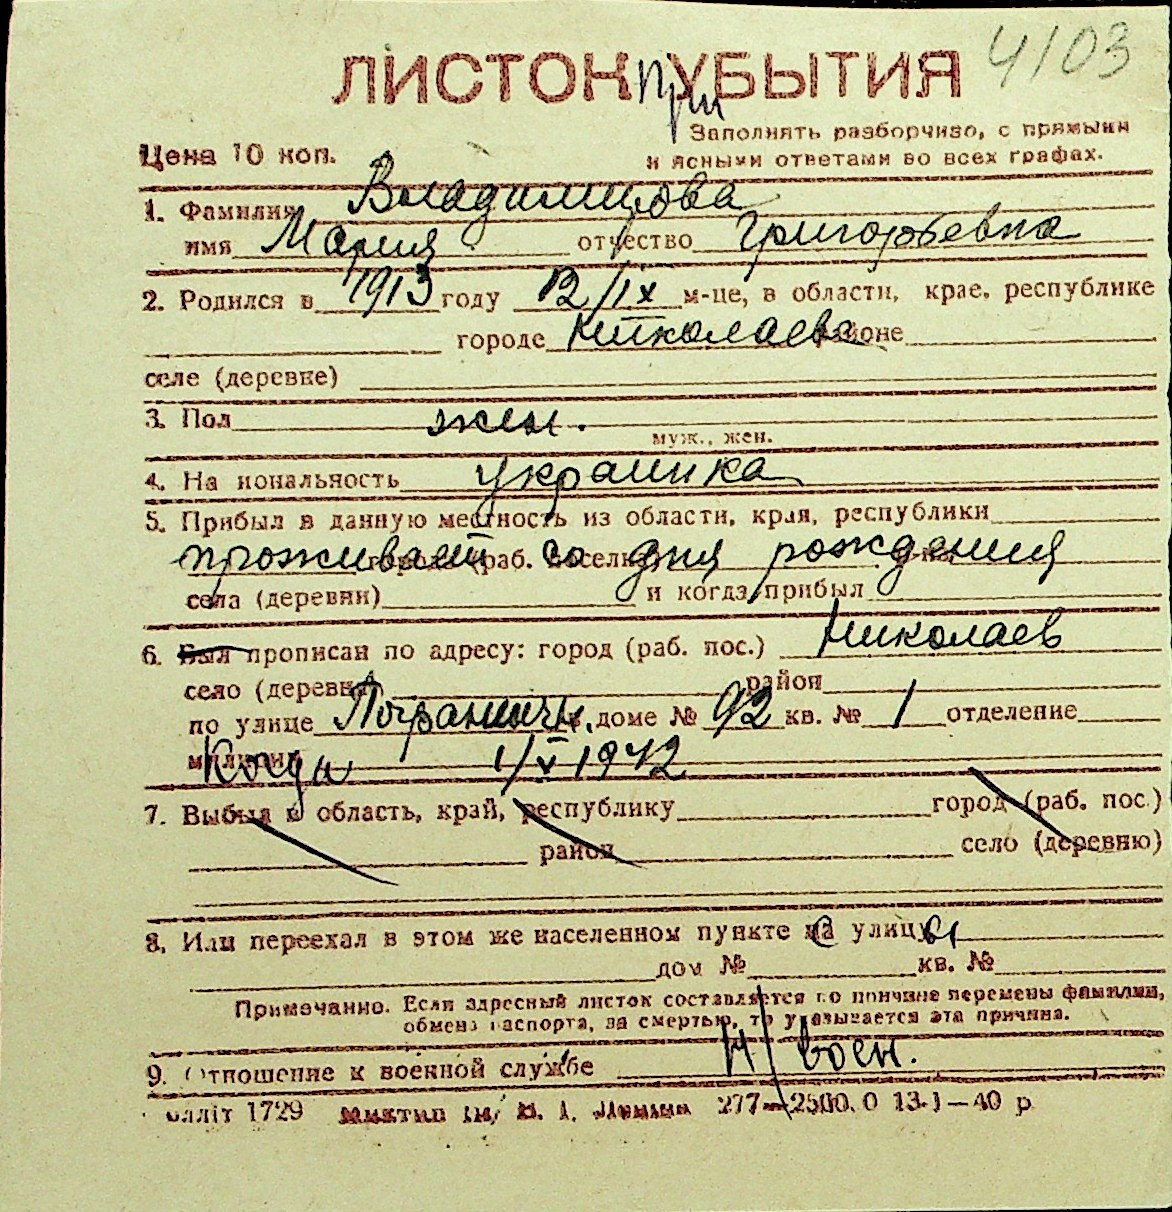 4103
ЛИСТОК при УБЫТИЯ
Цена 10 коп.
Заполнять разборчиво, с прямыми
и ясными ответами во всех графах.
1. Фамилия Владимирова
имя Мария отчество Григорьевна
2. Родился в 1913 году 12/IX м-це, в области, крае, республике
городе Николаеве районе
селе (деревне)
3. Пол жен.
муж., жен.
4. На иональность украинка
5. Прибыл в данную местность из области, края, республики
проживает со дня рождения
города (раб. поселка)
села (деревни) и когда прибыл
6. Был прописан по адресу: город (раб. пос.) Николаев
село (деревня) район
по улице Пограничн. в доме № 92 кв. № 1 отделение
милиции Когда 1/V 1942
7. Выбыл в область, край, республику город (раб. пос.)
район село (деревню)
8. Или переехал в этом же населенном пункте на улицу
дом № кв. №
Примечание. Если адресный листок составляется по причине перемены фамилии,
обмена паспорта, за смертью, то указывается эта причина.
9. Отношение к военной службе н/воен.
1729 277—2500. О 13.I—40 р